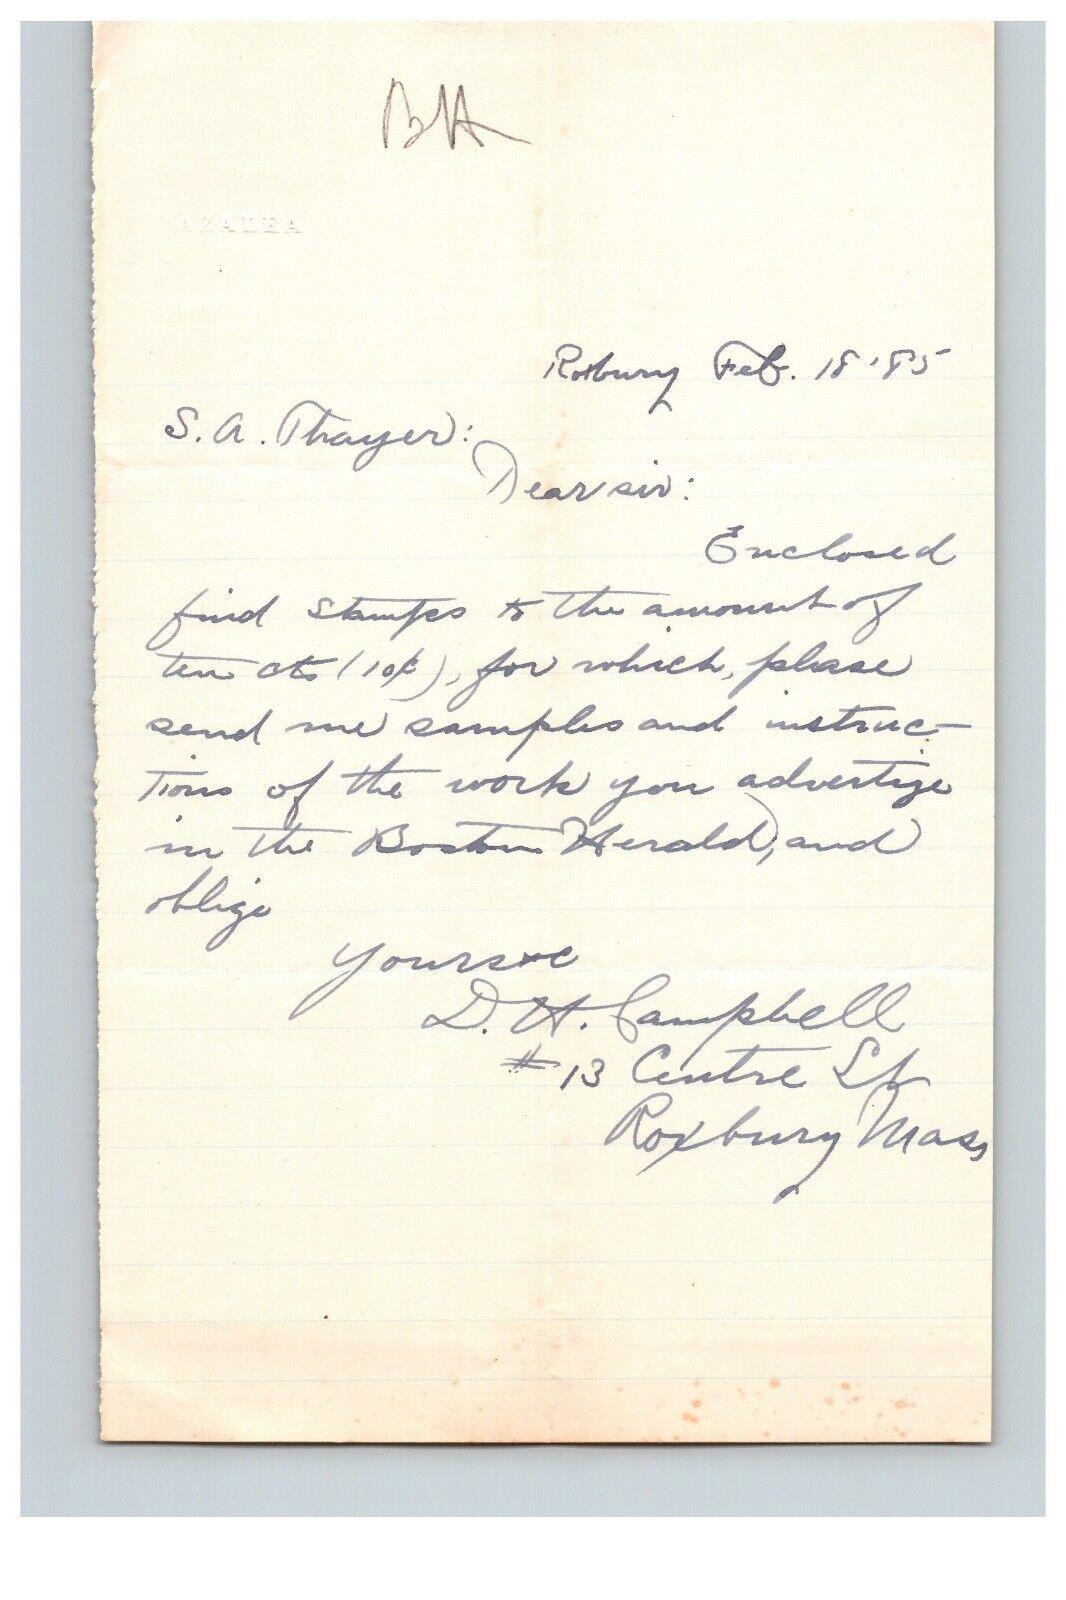 BH
AZALEA
Roxbury Feb. 18 '85
S. A. Thayer:
Dear sir:
Enclosed
find stamps to the amount of
ten cts (10¢), for which, please
send me samples and instruc-
tions of the work you advertize
in the Boston Herald, and
oblige
Yours &c
D. H. Campbell
# 13 Centre St
Roxbury Mass